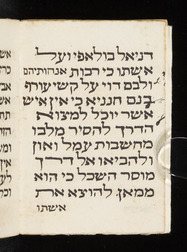 דניאל בולאפיו ועל
אשתו כי רבות אנהותיהם
ולבם דוי על קשי עורף
בנם חנניא כי אין איש
אשר יוכל למצוא
הדרך להסיר מלבו
מחשבות עמל ואון
ולהביאו אל דרך
מוסר השכל כי הוא
ממאן להוצא את
אשתו